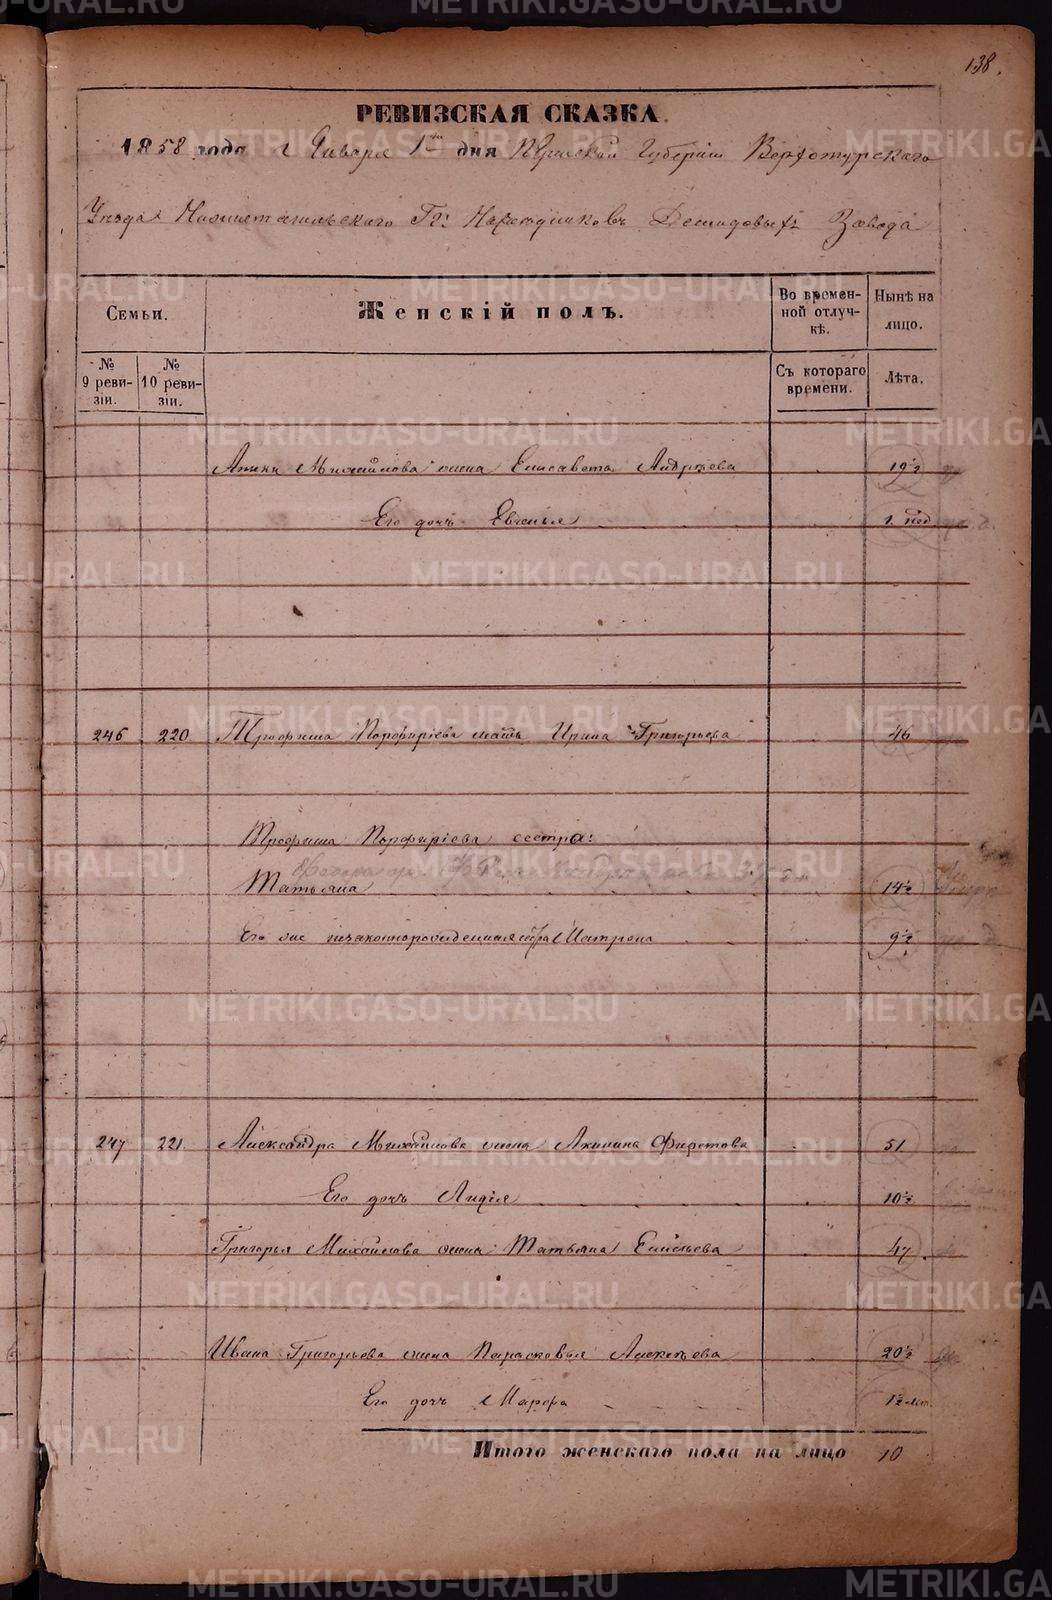 138.
РЕВИЗСКАЯ СКАЗКА
1858 года Января 1го дня Пермской Губерніи Верхотурскаго
Уѣзда Нижнетагильскаго Гг: Наслѣдниковъ Демидовыхъ Завода
Семьи.
Женскій полъ.
Во времен-
ной отлуч-
кѣ.
Нынѣ на
лицо.
№
9 реви-
зіи.
№
10 реви-
зіи.
Съ котораго
времени.
Лѣта.
Михайлова жена Елисавета Андрѣева 19½
Его дочь Евгенья 1. нед.
246 220 Трофима Порфиріева мать Ирина Григорьева 46
Трофима Порфиріева сестра:
Татьяна 14½
Его же незаконнорожденная сестра Матрена 9½
247 221. Александра Михайлова жена Акилина Фирстова 51
Его дочь Лидія 10½
Григорья Михайлова жена Татьяна Елисѣева 47
Ивана Григорьева жена Парасковья Алексѣева 20½
Его дочь Марфа 1½ лѣт.
Итого женскаго пола на лицо 10
METRIKI.GASO-URAL.RU